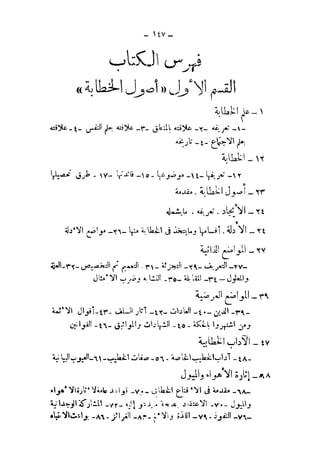 – ١٤٧ –
فهرس الكتاب
القسم الأول «أصول الخطابة»
١ – علم الخطابة
-١- تعريفه -٢- علاقته بالمنطق -٣- علاقته بعلم النفس -٤- علاقته
بعلم الاجتماع -٤- تاريخه
١٢ – الخطابة
١٢- تعريفها -١٤- موضوعها -١٥- فائدتها -١٧- طرق تحصيلها
٢٣ – أصول الخطابة. مقدمة
٢٤ – الايجاد. تعريفه. مايشمله
٢٤ – الأدلة. أقسامها ومايتخذ في الخطابة منها -٢٦- مواضع الأدلة
٢٧ – المواضع الذاتية
-٢٧- التعريف -٢٩- التجزئة -٣١- التعميم ثم التخصيص -٣٢- العلة
والمعلول -٣٤- المقابلة -٣٥- التشابه وضرب الأمثال
٣٩ – المواضع العرضية
-٣٩- الدين -٤٠- العادات -٤٢- آثار السلف -٤٣- أقوال الأئمة
ومن اشتهروا بالحكمة -٤٥- الشهادات والمواثيق -٤٦- القوانين
٤٧ – الآداب الخطابية
-٤٨- آداب الخطيب الخاصة -٥٦- صفات الخطيب -٦١- العيوب البيانية
٦٨ – إثارة الأهواء والميول
-٦٨- مقدمة في الاقناع الخطابي -٧٠- قواعد عامة لاثارة الأهواء
والميول -٧٠- الاعتقاد بصحة مايدعو إليه -٧٢- المشاركة الوجدانية
-٧٦- النفوذ -٧٩- اللذة والألم -٨٣- الغرائز -٨٦- بواعث الانتباه